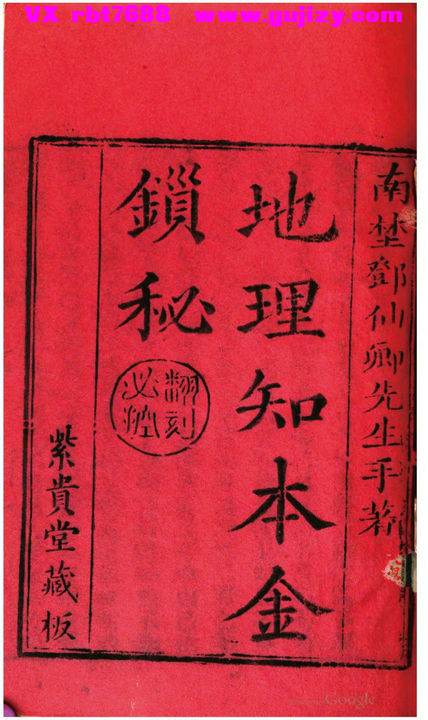 VX rbt7688 www.gujizy.com
南埜鄧仙卿先生手著
地理知本金
鎖秘
翻刻
必究
紫貴堂藏板
Google